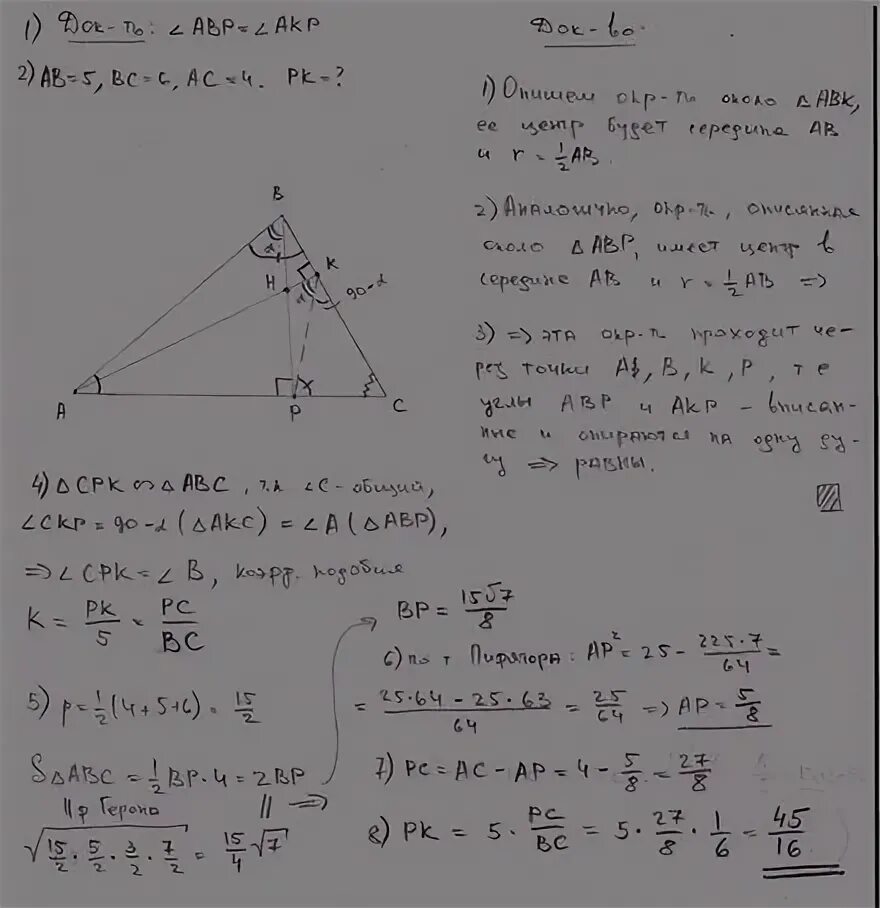 1) Док-ть: ∠ABP = ∠AKP
2) AB=5, BC=6, AC=4. PK=?
Док-во.
1) Опишем окр-ть около △ABK,
ее центр будет середина AB
и r = 1/2 AB.
2) Аналогично, окр-ть, описанная
около △ABP, имеет центр в
середине AB и r = 1/2 AB =>
3) => эта окр-ть проходит че-
рез точки A, B, K, P, т е
углы ABP и AKP – вписан-
ные и опираются на одну ду-
гу => равны.
B
α
K
H
α
90-α
A
P
C
4) △CPK ∾ △ABC, т.к ∠C-общий,
∠CKP = 90-α (△AKC) = ∠A (△ABP),
=> ∠CPK = ∠B, коэфф. подобия
K = PK/5 = PC/BC
5) p = 1/2 (4+5+6) = 15/2
S△ABC = 1/2 BP·4 = 2BP
|| ф Герона || =>
√(15/2 · 5/2 · 3/2 · 7/2) = 15/4 √7
BP = 15√7/8
6) по т Пифагора: AP² = 25 - 225·7/64 =
= (25·64 - 25·63)/64 = 25/64 => AP = 5/8
7) PC = AC - AP = 4 - 5/8 = 27/8
8) PK = 5 · PC/BC = 5 · 27/8 · 1/6 = 45/16